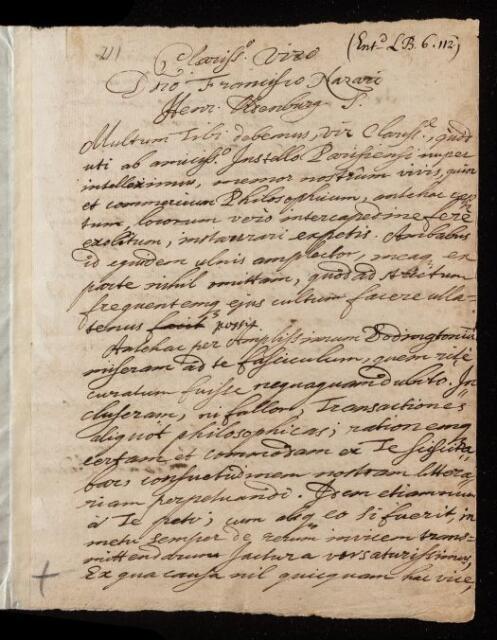 211
(Ent.d LB. 6. 112)
Clariss.o Viro
Dno Francisco Nazario
Henr. Oldenburg S.
Multum Tibi debemus, vir Clariss.e, quod
uti ab amiciss.o Justello Parisiensi nuper
intelleximus, memor nostrum vivis, quin
et commercium Philosophicum, antehac cœp-
tum, locorum vero intercapedine fere
exoletum, instaurari expetis. Ambabus
id equidem ulnis amplector, meaq. ex
parte nihil omittam, quod ad strictum
frequentemq. ejus cultum facere ulla-
tenus possit.
Antehac per Amplissimum Dodingtonium
miseram ad te fasciculum, quem rite
curatum fuisse nequaquam dubito. In-
cluseram, ni fallor, Transactiones
aliquot philosophicas; rationemq.
certam et commodam ex Te sciscita-
bar, consuetudinem nostram littera-
riam perpetuandi. Idem etiamnum
a Te peto; cum absq. eo si fuerit, in
metu semper de rerum invicem trans-
mittendarum jactura versaturi simus,
Ex qua causa nil quicquam hac vice,